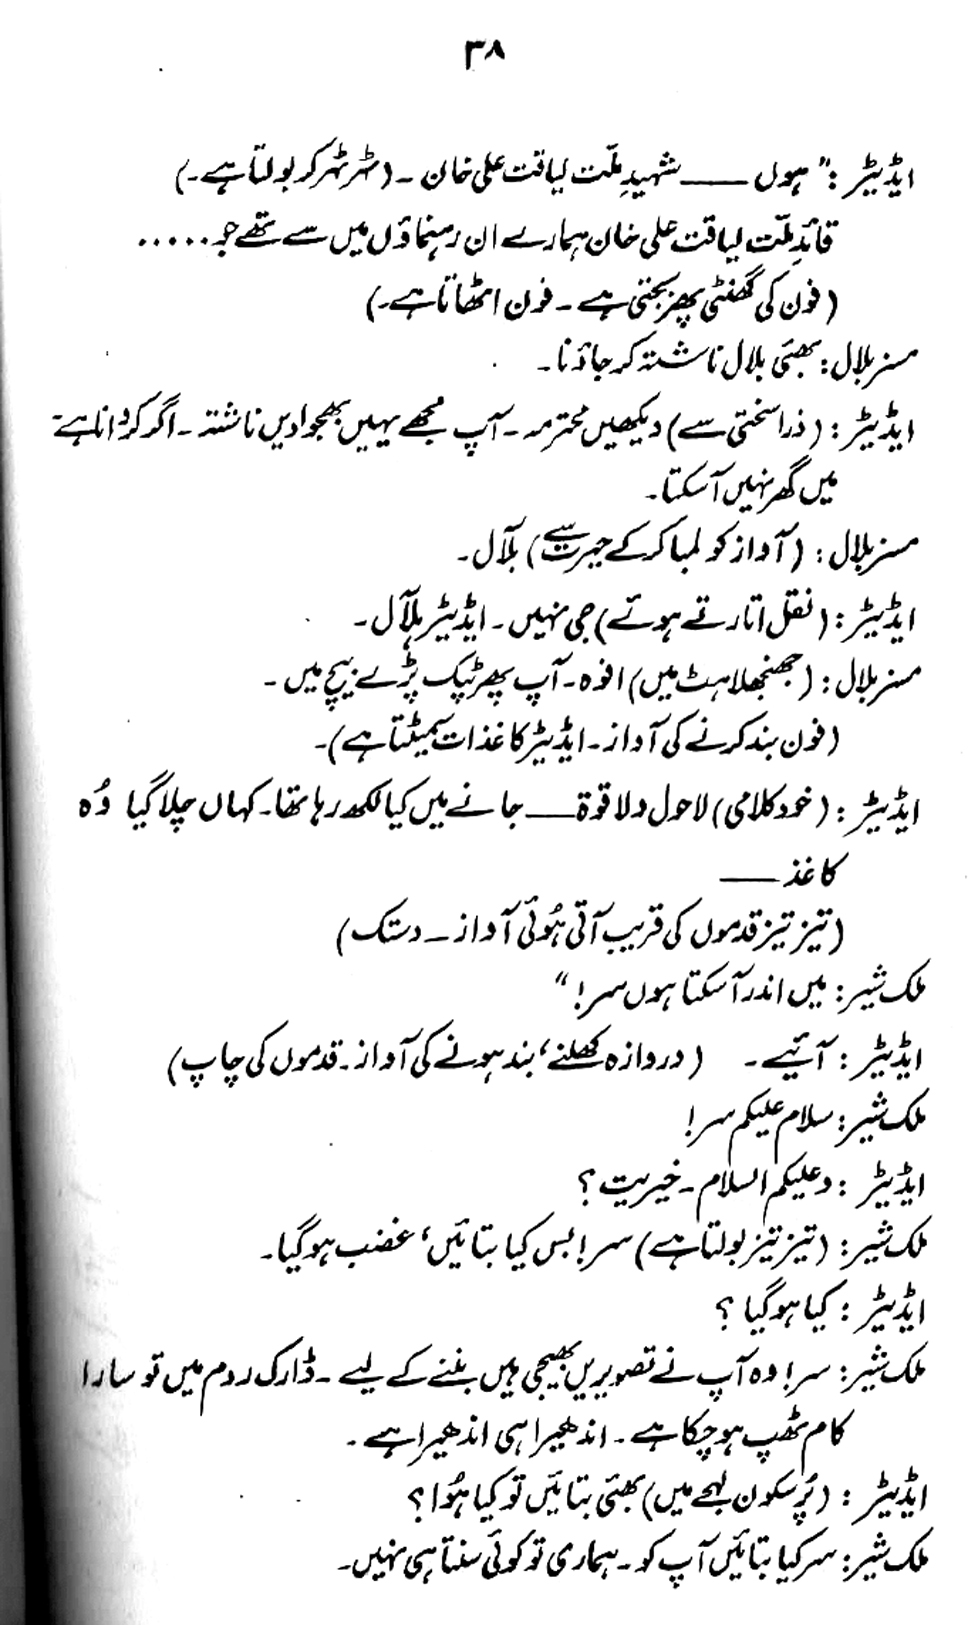 ۳۸
ایڈیٹر : " ہوں ــــــ شہیدِ ملّت لیاقت علی خان ۔ (ٹھر ٹھر کر بولتا ہے۔)
قائدِ ملّت لیاقت علی خان ہمارے ان رہنماؤں میں سے تھے جو .....
(فون کی گھنٹی پھر بجتی ہے ۔ فون اٹھاتا ہے۔)
مسز بلال : بھئی بلال ناشتہ کر جاؤ نا ۔
ایڈیٹر : (ذرا سختی سے) دیکھیں محترمہ ۔ آپ مجھے یہیں بھجوا دیں ناشتہ ۔ اگر کروانا ہے۔
میں گھر نہیں آ سکتا ۔
مسز بلال : (آواز کو لمبا کر کے حیرت سے) بلآل ۔
ایڈیٹر : (نقل اتارتے ہوئے) جی نہیں ۔ ایڈیٹر بلآل ۔
مسز بلال : (جھنجھلاہٹ میں) افوہ ۔ آپ پھر ٹپک پڑے بیچ میں ۔
(فون بند کرنے کی آواز ۔ ایڈیٹر کاغذات سمیٹتا ہے)۔
ایڈیٹر : (خود کلامی) لاحول ولا قوۃ ــــــ جانے میں کیا لکھ رہا تھا۔ کہاں چلا گیا وُہ
کاغذ ــــــ
(تیز تیز قدموں کی قریب آتی ہُوئی آواز ۔ دستک)
ملک شیر : میں اندر آ سکتا ہوں سر! "
ایڈیٹر : آئیے ۔ (دروازہ کھلنے، بند ہونے کی آواز ۔ قدموں کی چاپ)
ملک شیر : سلام علیکم سر!
ایڈیٹر : وعلیکم السلام ۔ خیریت ؟
ملک شیر : (تیز تیز بولتا ہے) سر! بس کیا بتائیں، غضب ہو گیا ۔
ایڈیٹر : کیا ہو گیا ؟
ملک شیر : سر! وہ آپ نے تصویریں بھیجی ہیں بننے کے لیے ۔ ڈارک روم میں تو سارا
کام ٹھپ ہو چکا ہے ۔ اندھیرا ہی اندھیرا ہے ۔
ایڈیٹر : (پُرسکون لہجے میں) بھئی بتائیں تو کیا ہُوا ؟
ملک شیر : سر کیا بتائیں آپ کو ۔ ہماری تو کوئی سنتا ہی نہیں ۔